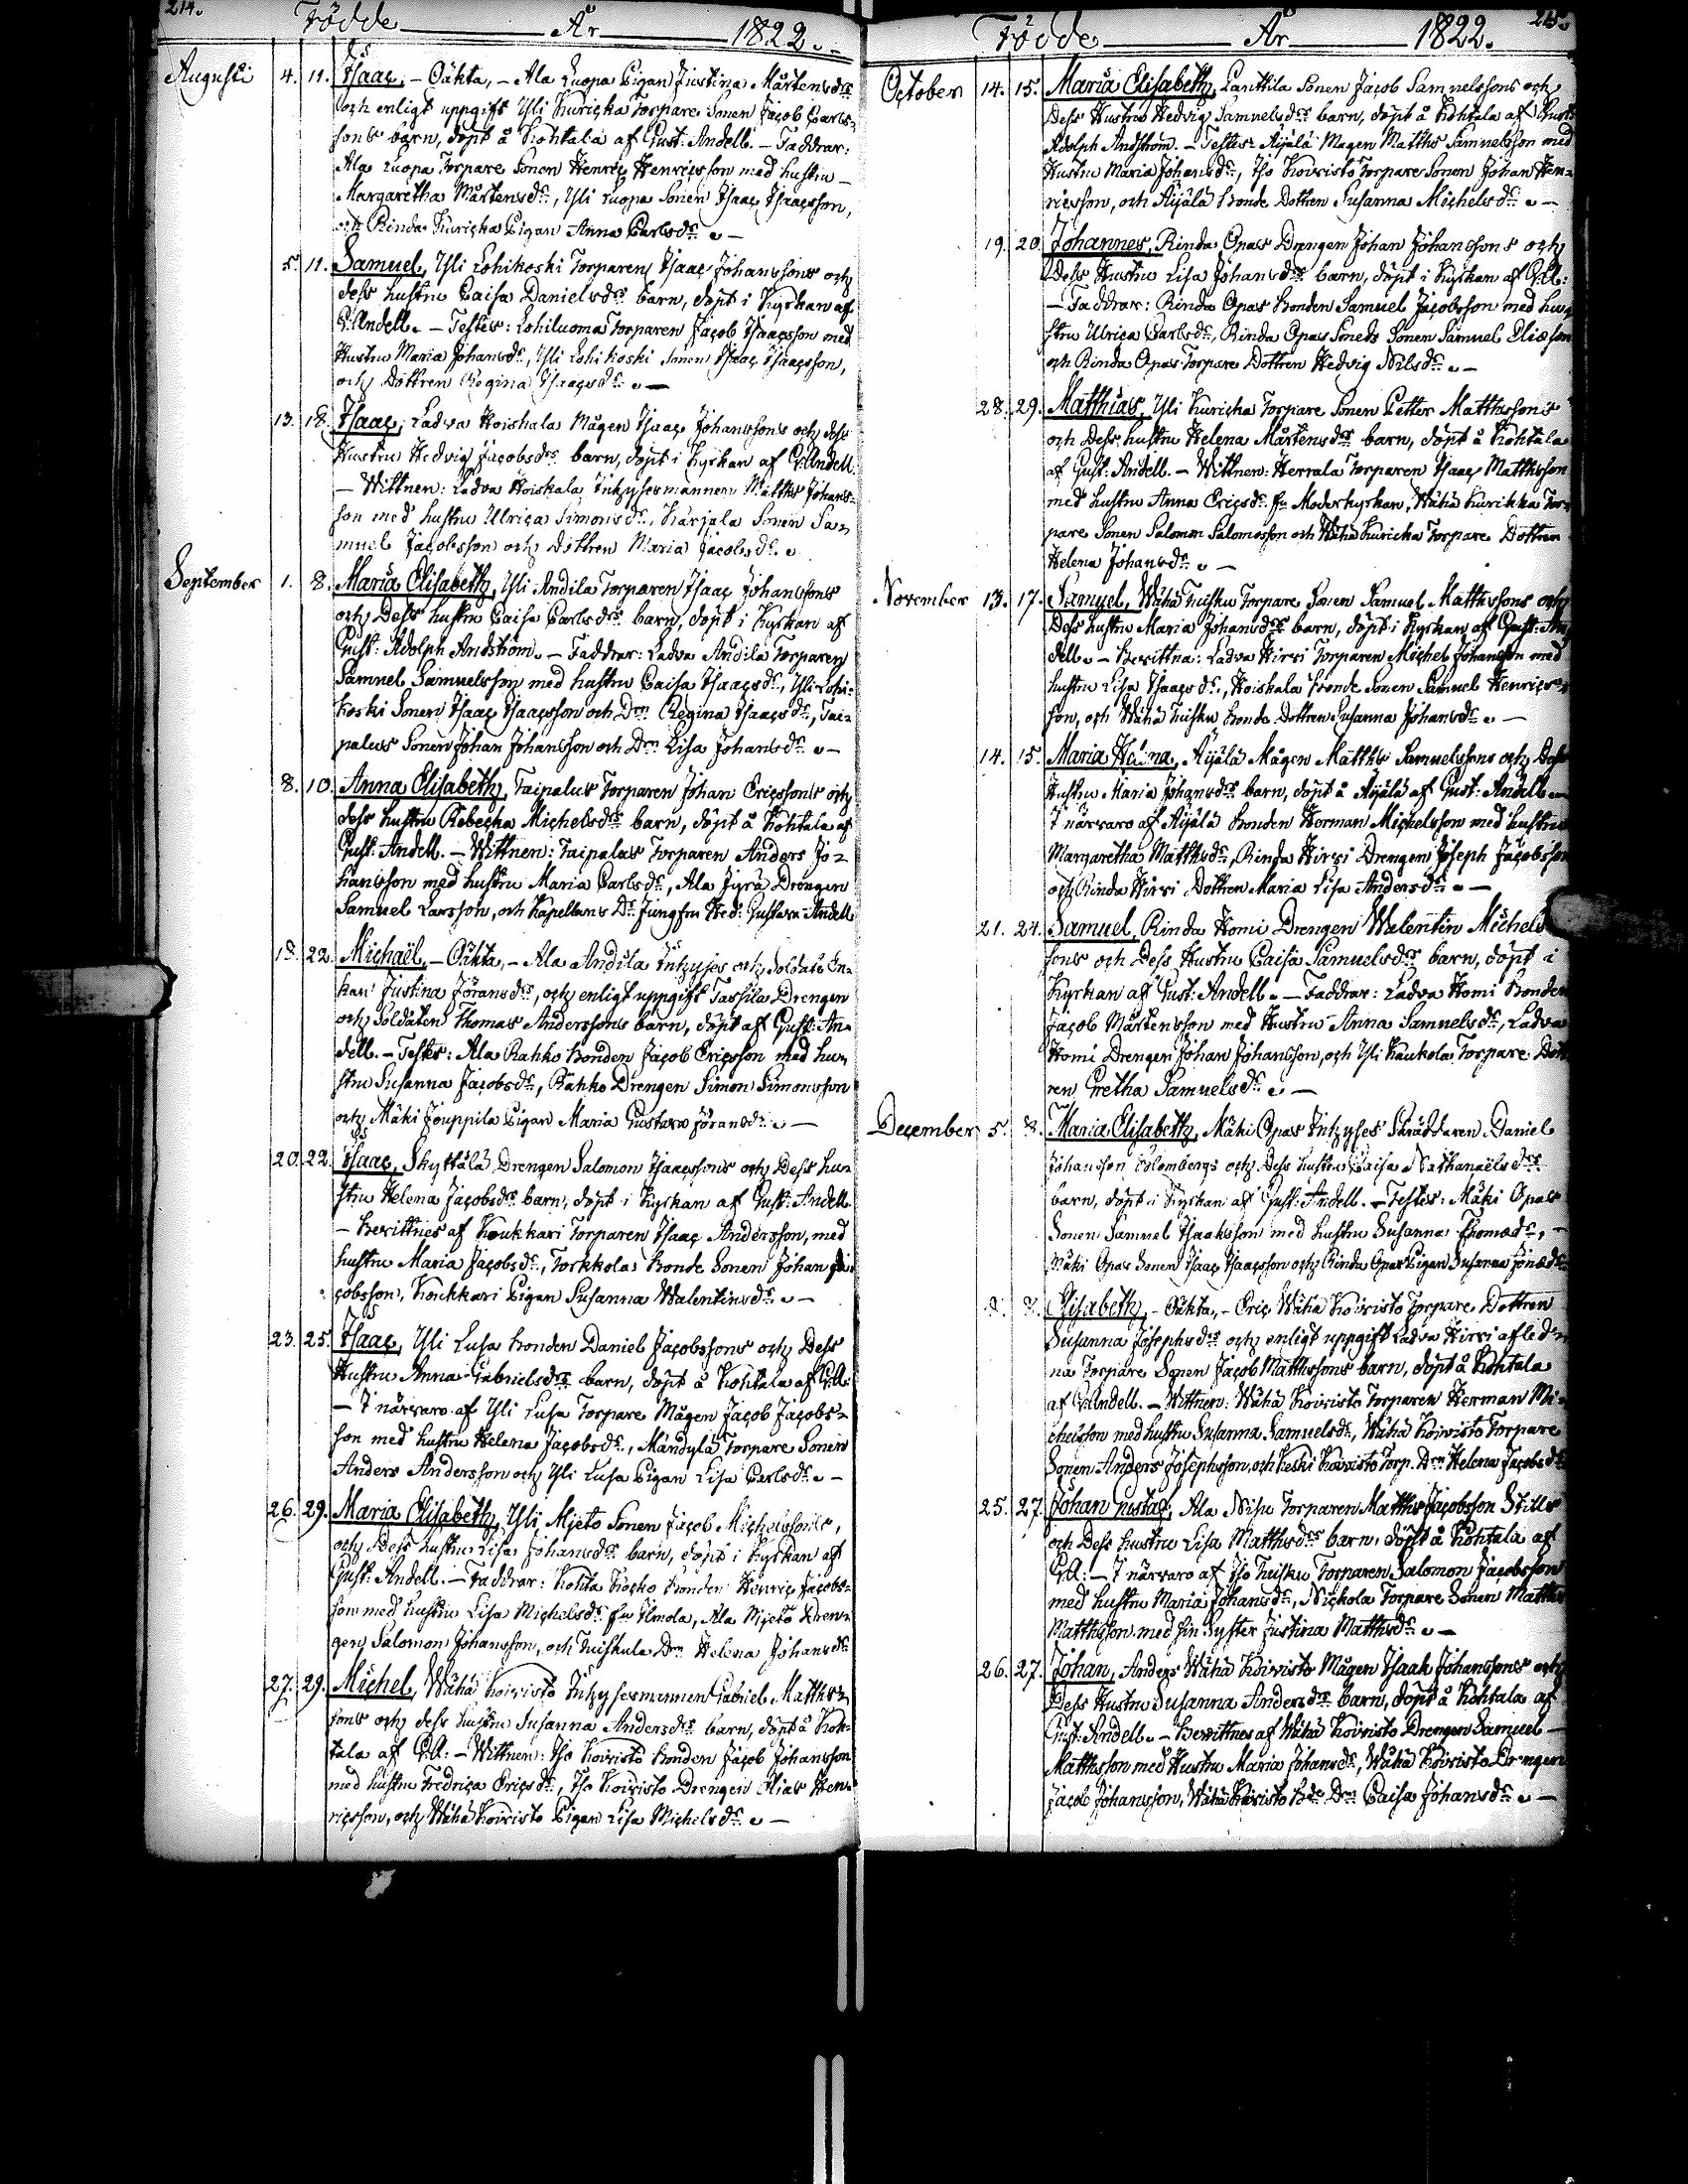 214.
Födde År 1822.
Augusti 4. 11. Isaac, - Oäkta, - Ala Luopa Pigan Justina Mårtensdrs
och enligt uppgift Yli Kuricka Torpare Sonen Jacob Carls-
sons barn, döpt å Kohtala af Gust: Andell. - Faddrar:
Ala Luopa Torpare Sonen Henric Henricsson med hustru -
Margaretha Mårtensdr, Yli Luopa Sonen Isaac Isaacsson,
och Rinda Kuricka Pigan Anna Carlsdr. -
5. 11. Samuel, Yli Lohikoski Torparen Isaac Johanssons och
dess hustru Caisa Danielsdrs barn, döpt i Kyrkan af
G: Andell. - Testes: Lohiluoma Torparen Jacob Isaacsson med
Hustru Maria Johansdr, Yli Lohikoski Sonen Isaac Isaacsson,
och Dottren Regina Isaacsdr. -
13. 18. Isaac, Ladva Hoiskala Mågen Isaac Johanssons och dess
Hustru Hedvig Jacobsdrs barn, döpt i Kyrkan af G: Andell.
- Wittnen: Ladva Hoiskala Inhysesmannen Matths Johans-
son med hustru Ulrica Simonsdr, Karjala Sonen Sa-
muel Jacobsson och Dottren Maria Jacobsdr.
September 1. 8. Maria Elisabeth, Yli Andila Torparen Isaac Johanssons
och Dess hustru Caisa Carlsdrs barn, döpt i Kyrkan af
Gust: Adolph Andström. - Faddrar: Ladva Andila Torparen
Samuel Samuelsson med hustru Caisa Isaacsdr, Yli Lohi-
koski Sonen Isaac Isaacsson och Drn Regina Isaacsdr, Tai-
palus Sonen Johan Johansson och Drn Lisa Johansdr. -
8. 10. Anna Elisabeth, Taipalus Torparen Johan Ericssons och
dess hustru Rebecka Michelsdrs barn, döpt å Kohtala af
Gust: Andell. - Wittnen: Taipalus Torparen Anders Jo-
hansson med hustru Maria Carlsdr, Ala Jyrä Drengen
Samuel Larsson, och Kapellans Dr Jungfru Hed: Gustava Andell
18. 22. Michaël, - Oäkta, - Ala Andila Inhyses och Soldats En-
kan Justina Jöransdrs, och enligt uppgift Tassila Drengen
och Soldaten Thomas Anderssons barn, döpt af Gust: An-
dell. - Testes: Ala Rahko Bonden Jacob Ericsson med hu-
stru Susanna Jacobsdr, Rahko Drengen Simon Simonsson
och Mäki Jouppila Pigan Maria Gustava Jöransdr. -
20. 22. Isaac, Skyttälä Drengen Salomon Isaacssons och Dess hu-
stru Helena Jacobsdrs barn, döpt i Kyrkan af Gust: Andell
- Bevittnes af Koukkari Torparen Isaac Andersson, med
hustru Maria Jacobsdr, Torkkola Bonde Sonen Johan Ja-
cobsson, Koukkari Pigan Susanna Walentinsdr. -
23. 25. Isaac, Yli Lusa Bonden Daniel Jacobssons och Dess
Hustru Anna Gabrielsdrs barn, döpt å Kohtala af G: A:
- I närvaro af Yli Lusa Torpare Mågen Jacob Jacobs-
son med hustru Helena Jacobsdr, Mändylä Torpare Sonen
Anders Andersson och Yli Lusa Pigan Lisa Carlsdr. -
26. 29. Maria Elisabeth, Yli Mjeto Sonen Jacob Michelssons,
och Dess hustru Lisa Johansdrs barn, döpt i Kyrkan af
Gust: Andell. - Faddrar: Kohta Kocko Bonden Henric Jacobs-
son med hustru Lisa Michelsdr fr Ilmola, Ala Mjeto Dren-
gen Salomon Johansson, och Tuiskula Drn Helena Johansdr
27. 29. Michel, Wähä Koivisto Inhysesmannen Gabriel Matths-
sons och dess hustru Susanna Andersdrs barn, döpt å Koh-
tala af G: A: - Wittnen: Iso Koivisto Bonden Jacob Johansson
med hustru Fredrica Ericsdr, Iso Koivisto Drengen Elias Hen-
ricsson, och Wähä Koivisto Pigan Lisa Michelsdr. -
215.
Födde År 1822.
October 14. 15. Maria Elisabeth, Lanttila Sonen Jacob Samuelssons och
Dess Hustru Hedvig Samuelsdrs barn, döpt å Kohtala af Gust:
Adolph Andström. - Testes: Äijälä Magen Matths Samuelsson med
Hustru Maria Johansdr, Iso Koivisto Torpare Sonen Johan Hen-
ricsson, och Äijälä Bonde Dottren Susanna Michelsdr. -
19. 20. Johannes, Rinda Opas Drengen Johan Johanssons och
Dess Hustru Lisa Johansdrs barn, döpt i Kyrkan af G: A:
- Faddrar: Rinda Opas Bonden Samuel Jacobsson med hu-
stru Ulrica Carlsdr, Rinda Opas Smeds Sonen Samuel Eliæson
och Rinda Opas Torpare Dottren Hedvig Nilsdr. -
28. 29. Matthias, Yli Kuricka Torpare Sonen Petter Matthssons
och Dess hustru Helena Mårtensdrs barn, döpt å Kohtala
af Gust: Andell. - Wittnen: Herrala Torparen Isaac Matthsson
med hustru Anna Ericsdr fr Moderkyrkan, Wähä Kurikka Tor-
pare Sonen Salomon Salomosson och Wähä Kuricka Torpare Dottren
Helena Johansdr. -
November 13. 17. Samuel, Wähä Tuisku Torpare Sonen Samuel Matthssons och
Dess hustru Maria Johansdrs barn, döpt i Kyrkan af Gust: An-
dell. - Bevittna: Ladva Hirvi Torparen Michel Johansson med
hustru Lisa Isaacsdr, Hoiskala Bonde Sonen Samuel Henrics-
son, och Wähä Tuisku Bonde Dottren Susanna Johansdr. -
14. 15. Maria Helena, Äijälä Mågen Matths Samuelssons och Dess
Hustru Maria Johansdrs barn, döpt å Äijälä af Gust: Andell -
I närvaro af Äijälä Bonden Herman Michelsson med hustru
Margaretha Matthsdr, Rinda Hirvi Drengen Joseph Jacobsson
och Rinda Hirvi Dottren Maria Lisa Andersdr. -
21. 24. Samuel, Rinda Homi Drengen Walentin Michels
sons och Dess Hustru Caisa Samuelsdrs barn, döpt i
Kyrkan af Gust: Andell. - Faddrar: Ladva Homi Bonden
Jacob Mårtensson med Hustru Anna Samuelsdr, Ladva
Homi Drengen Johan Johansson, och Yli Kaukola Torpare Dott
ren Gretha Samuelsdr. -
December 5. 8. Maria Elisabeth, Mäki Opas Inhyses Skräddaren Daniel
Johansson och Dess hustru Caisa Nathanaëlsdrs
barn, döpt i Kyrkan af Gust: Andell. - Testes: Mäki Opas
Sonen Samuel Isaaksson med hustru Susanna Thomædr, -
Mäki Opas Sonen Isaac Isaacsson och Rinda Opas Pigan Susanna
Elisabeth, - Oäkta, - Eric Wähä Koivisto Torpare Dottren
Susanna Josephsdrs och enligt uppgift Ladva Hirvi afled-
na Torpare Sonen Jacob Matthssons barn, döpt å Kohtala
af G: Andell. - Wittnen: Wähä Koivisto Torparen Herman Mi-
chelsson med hustru Susanna Samuelsdr, Wähä Koivisto Torpare
Sonen Anders Josephsson, och Keski Koivisto Torp. Drn Helena Jacobsdr
25. 27. Johan Gustaf, Ala Nisu Torparen Matths Jacobsson Stills
och Dess hustru Lisa Matthsdrs barn, döpt å Kohtala af
G: A: - I närvaro af Iso Tuisku Torparen Salomon Jacobsson
med hustru Maria Johansdr, Nickola Torpare Sonen Matths
Matthsson med sin Syster Justina Matthsdr. -
26. 27. Johan, Anders Wähä Koivisto Mågen Isaak Johanssons och
Dess Hustru Susanna Andersdrs barn, döpt å Kohtala af
Gust: Andell. - Bevittnes af Wähä Koivisto Drengen Samuel -
Matthsson med Hustru Maria Johansdr, Wähä Koivisto Drengen
Jacob Johansson, Wähä Koivisto Bde Drn Caisa Johansdr. -